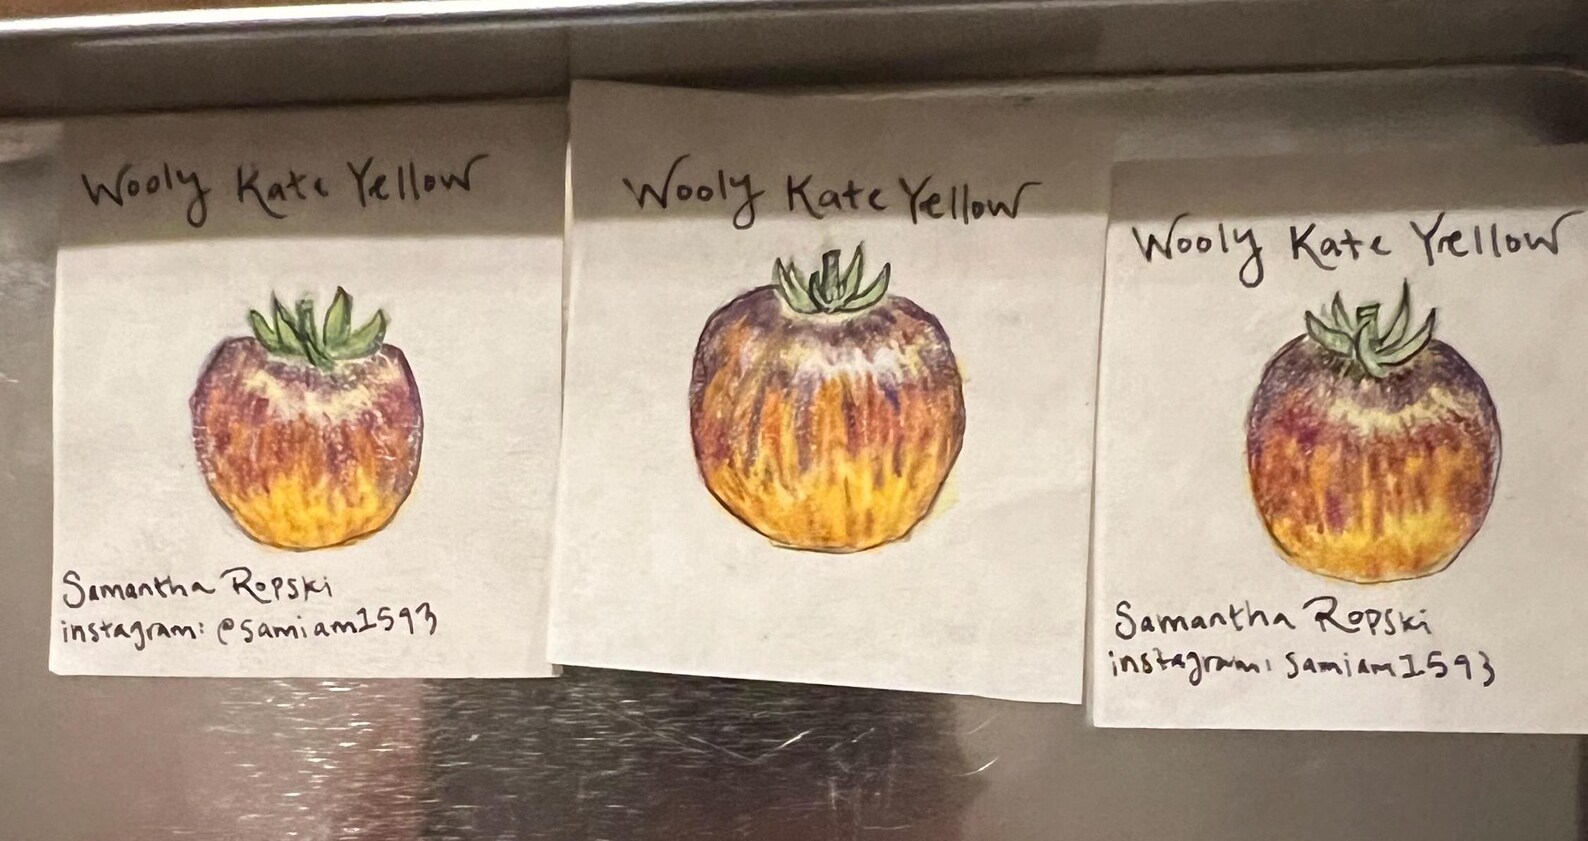 Wooly Kate Yellow
Samantha Ropski
instagram: @samiam1593
Wooly Kate Yellow
Wooly Kate Yellow
Samantha Ropski
instagram: samiam1593